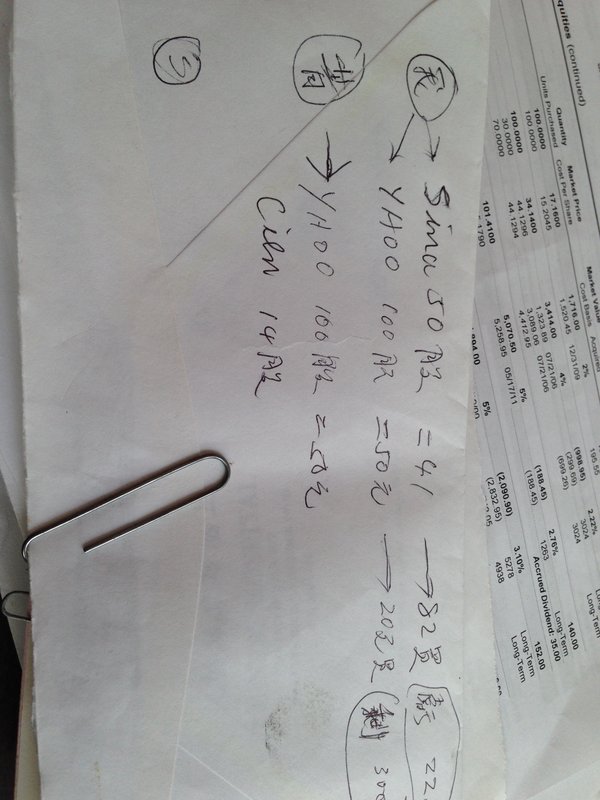 我 → Sina 50股 = 41 → 82買 22
→ YHOO 100股 = 50元 → 20元買 剩 300
→ YHOO 100股 = 50元
Cien 14股
3
quities (continued)
Quantity Market Price Market Value
Units Purchased Cost Per Share Cost Basis Acquired
100.0000 17.1600 1,716.00 2% 195.55 2.22% Long-Term
100.0000 15.2045 1,520.45 12/31/09 3024
100.0000 34.1400 3,414.00 4% (998.95) 140.00
30.0000 44.1296 1,323.89 07/21/06 (299.69) 3024 Long-Term
70.0000 44.1294 3,089.06 07/21/06 (699.26) Long-Term
4,412.95
2.76% Accrued Dividend: 35.00
101.4100 5,070.50 5% (188.45) 152.00
5,258.95 05/17/11 (188.45) 1263 Long-Term
5% (2,090.90) 3.10%
(2,832.95) 5278 Long-Term
4938 Long-Term